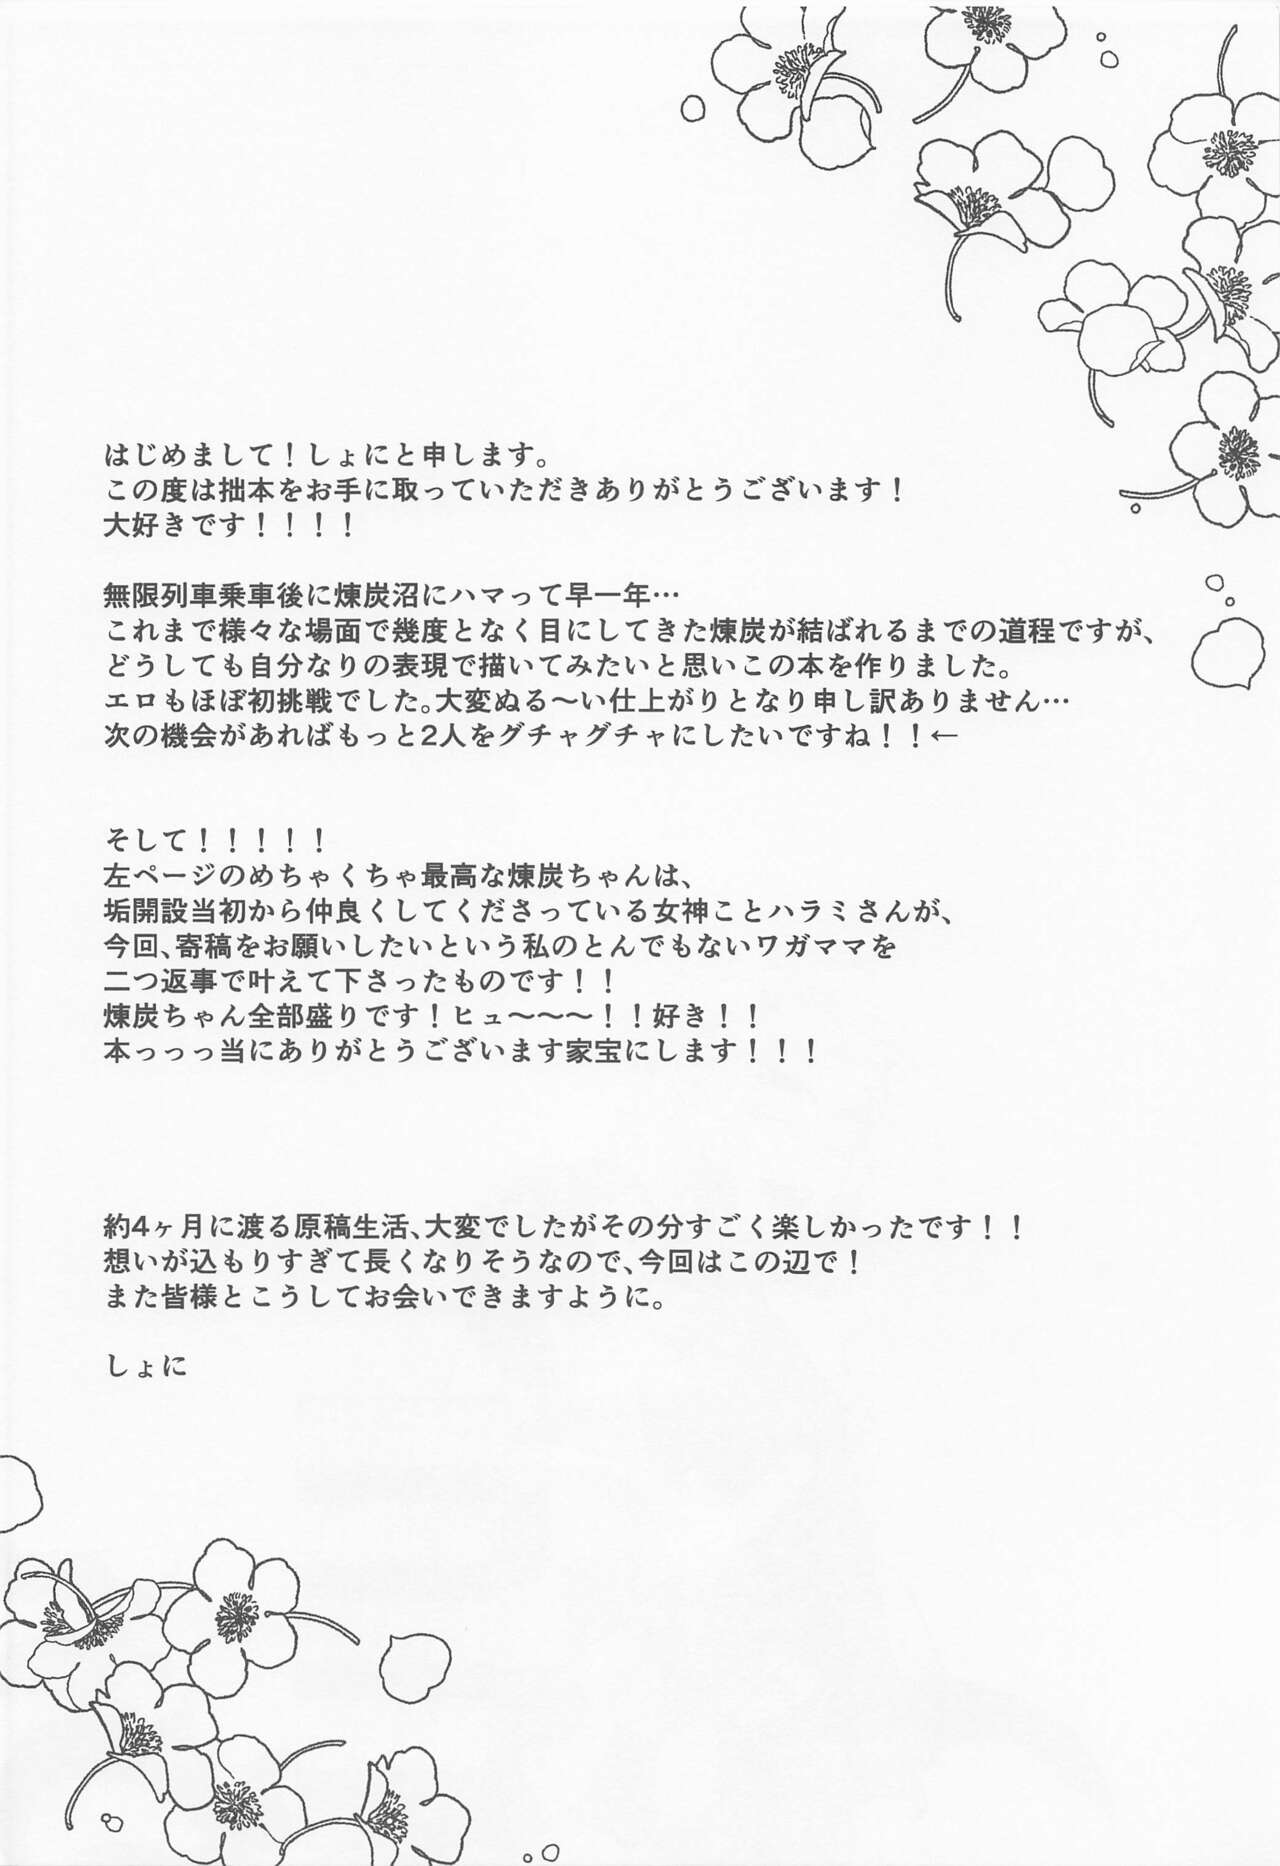 はじめまして！しょにと申します。
この度は拙本をお手に取っていただきありがとうございます！
大好きです！！！！
無限列車乗車後に煉炭沼にハマって早一年…
これまで様々な場面で幾度となく目にしてきた煉炭が結ばれるまでの道程ですが、
どうしても自分なりの表現で描いてみたいと思いこの本を作りました。
エロもほぼ初挑戦でした。大変ぬる〜い仕上がりとなり申し訳ありません…
次の機会があればもっと2人をグチャグチャにしたいですね！！←
そして！！！！！
左ページのめちゃくちゃ最高な煉炭ちゃんは、
垢開設当初から仲良くしてくださっている女神ことハラミさんが、
今回、寄稿をお願いしたいという私のとんでもないワガママを
二つ返事で叶えて下さったものです！！
煉炭ちゃん全部盛りです！ヒュ〜〜〜！！好き！！
本っっっ当にありがとうございます家宝にします！！！
約4ヶ月に渡る原稿生活、大変でしたがその分すごく楽しかったです！！
想いが込もりすぎて長くなりそうなので、今回はこの辺で！
また皆様とこうしてお会いできますように。
しょに